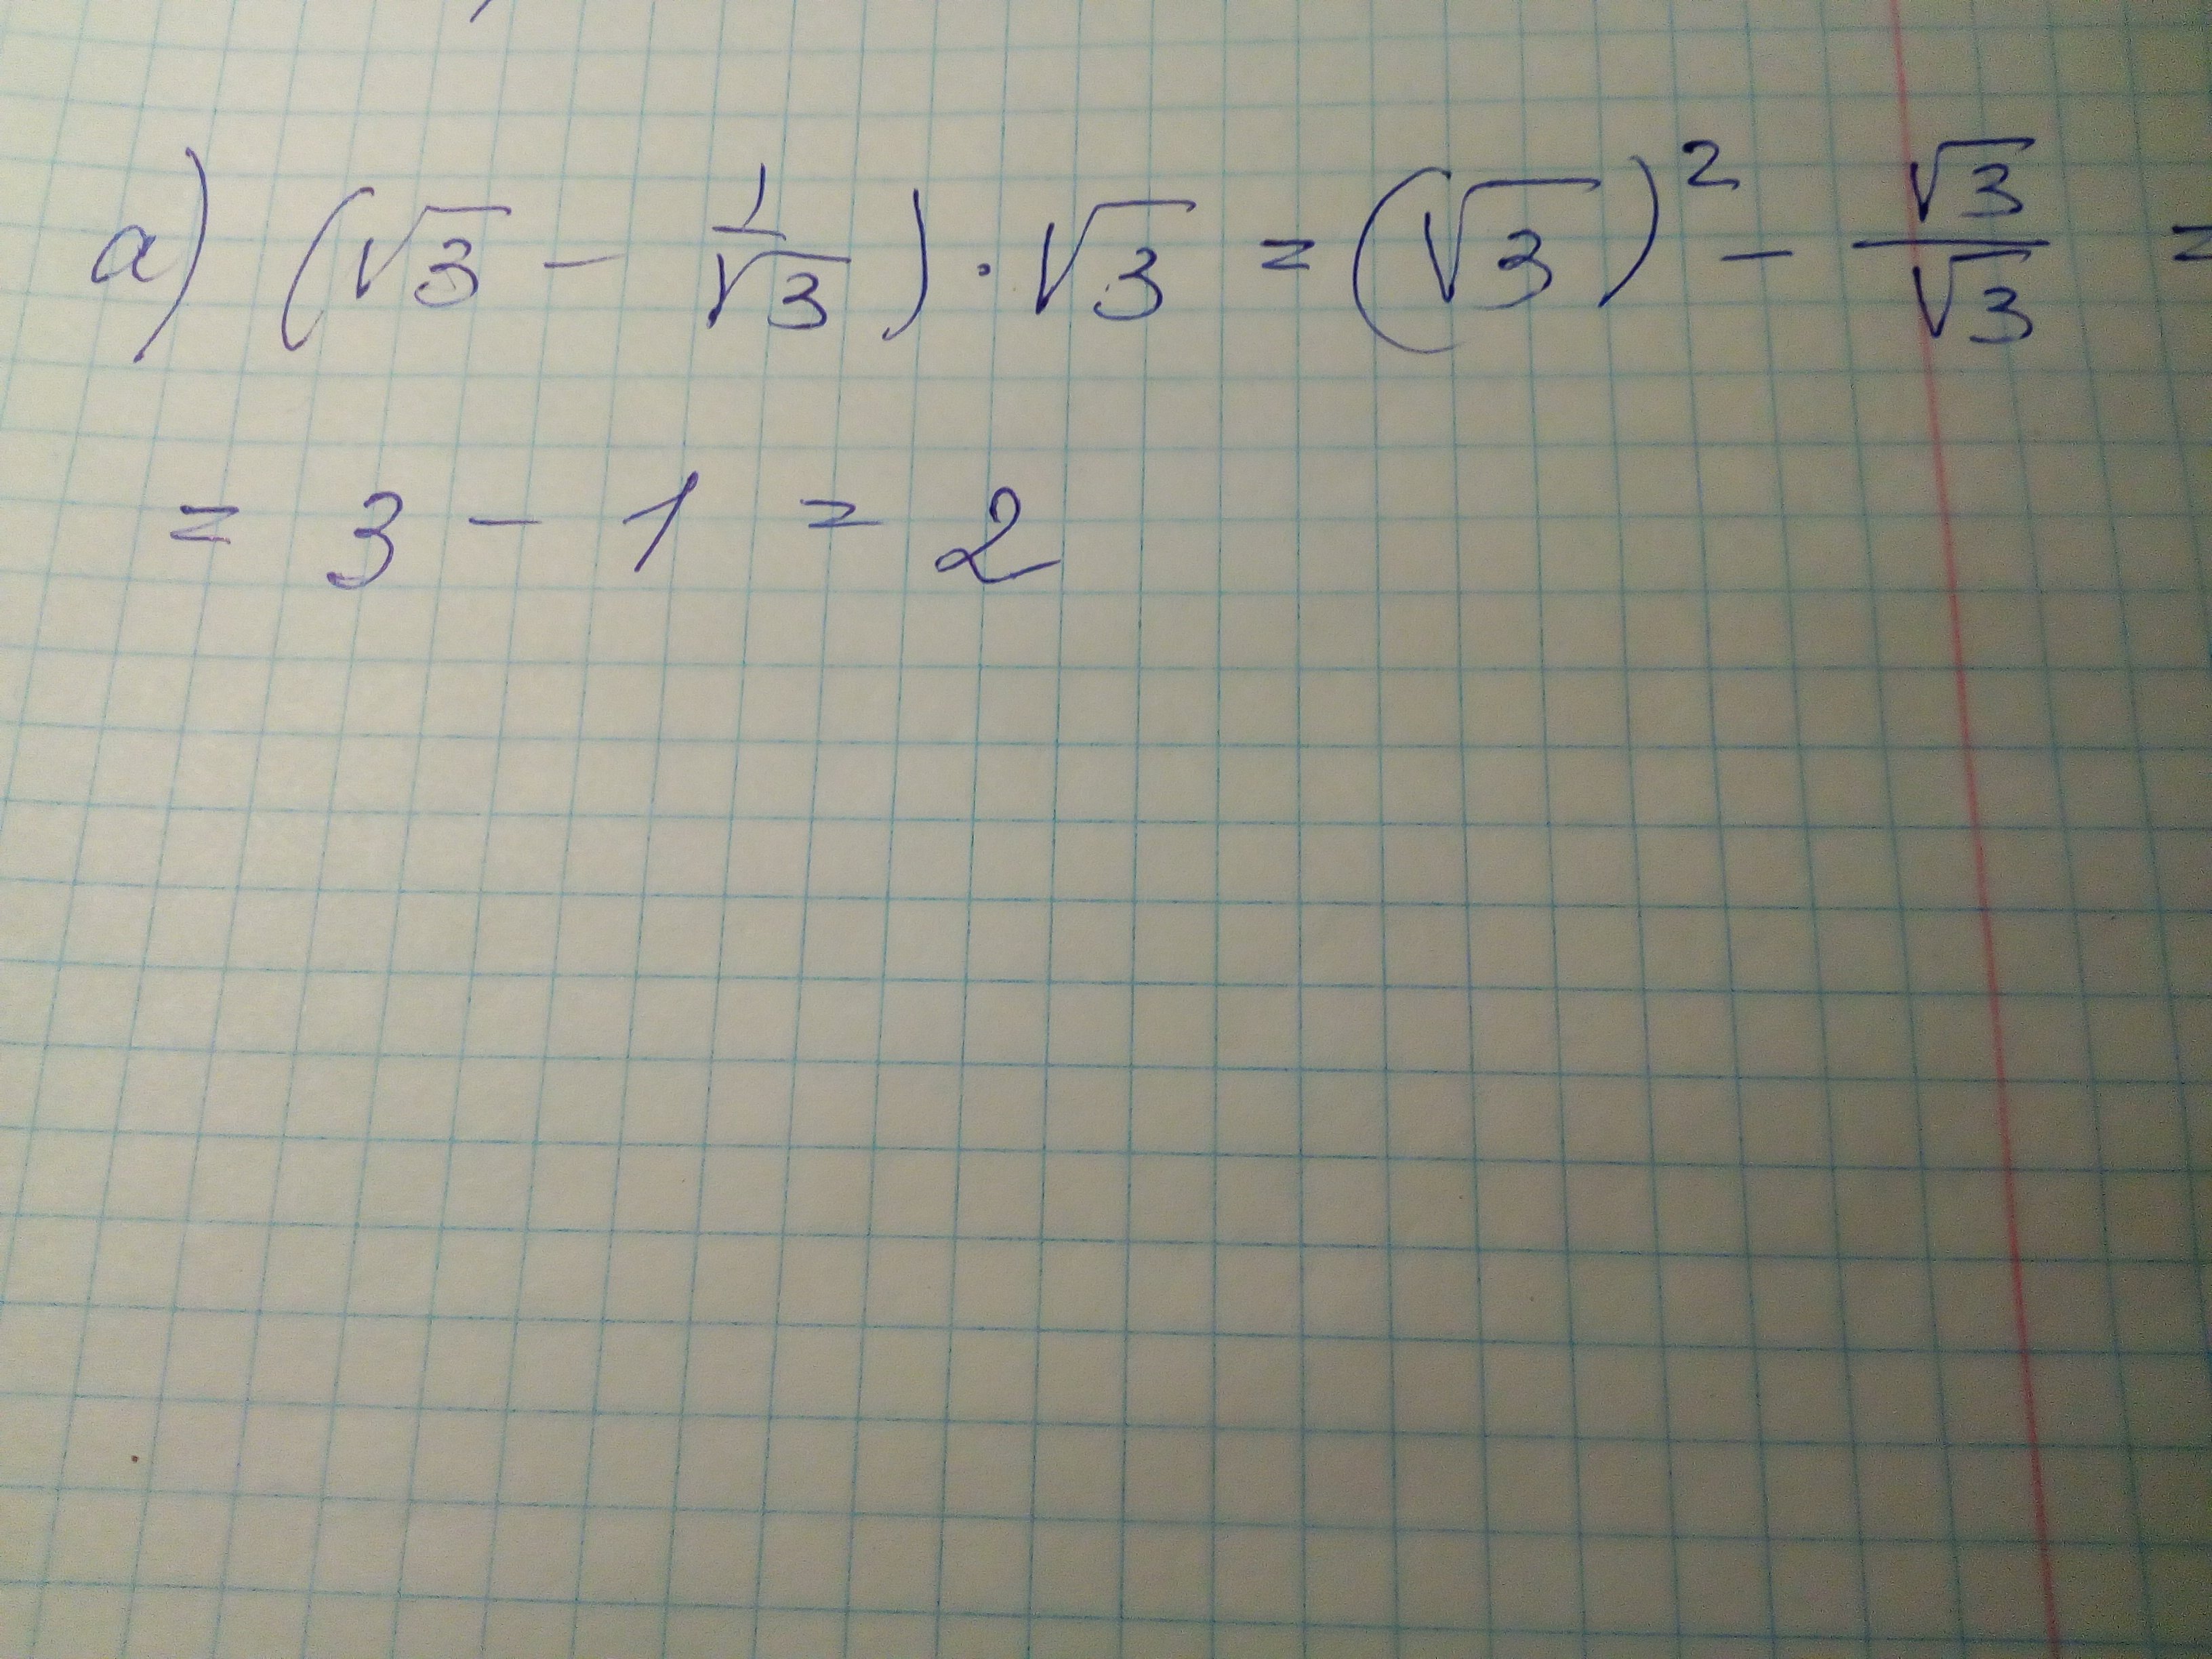 а) (√3 - 1/√3) · √3 = (√3)² - √3/√3 =
= 3 - 1 = 2